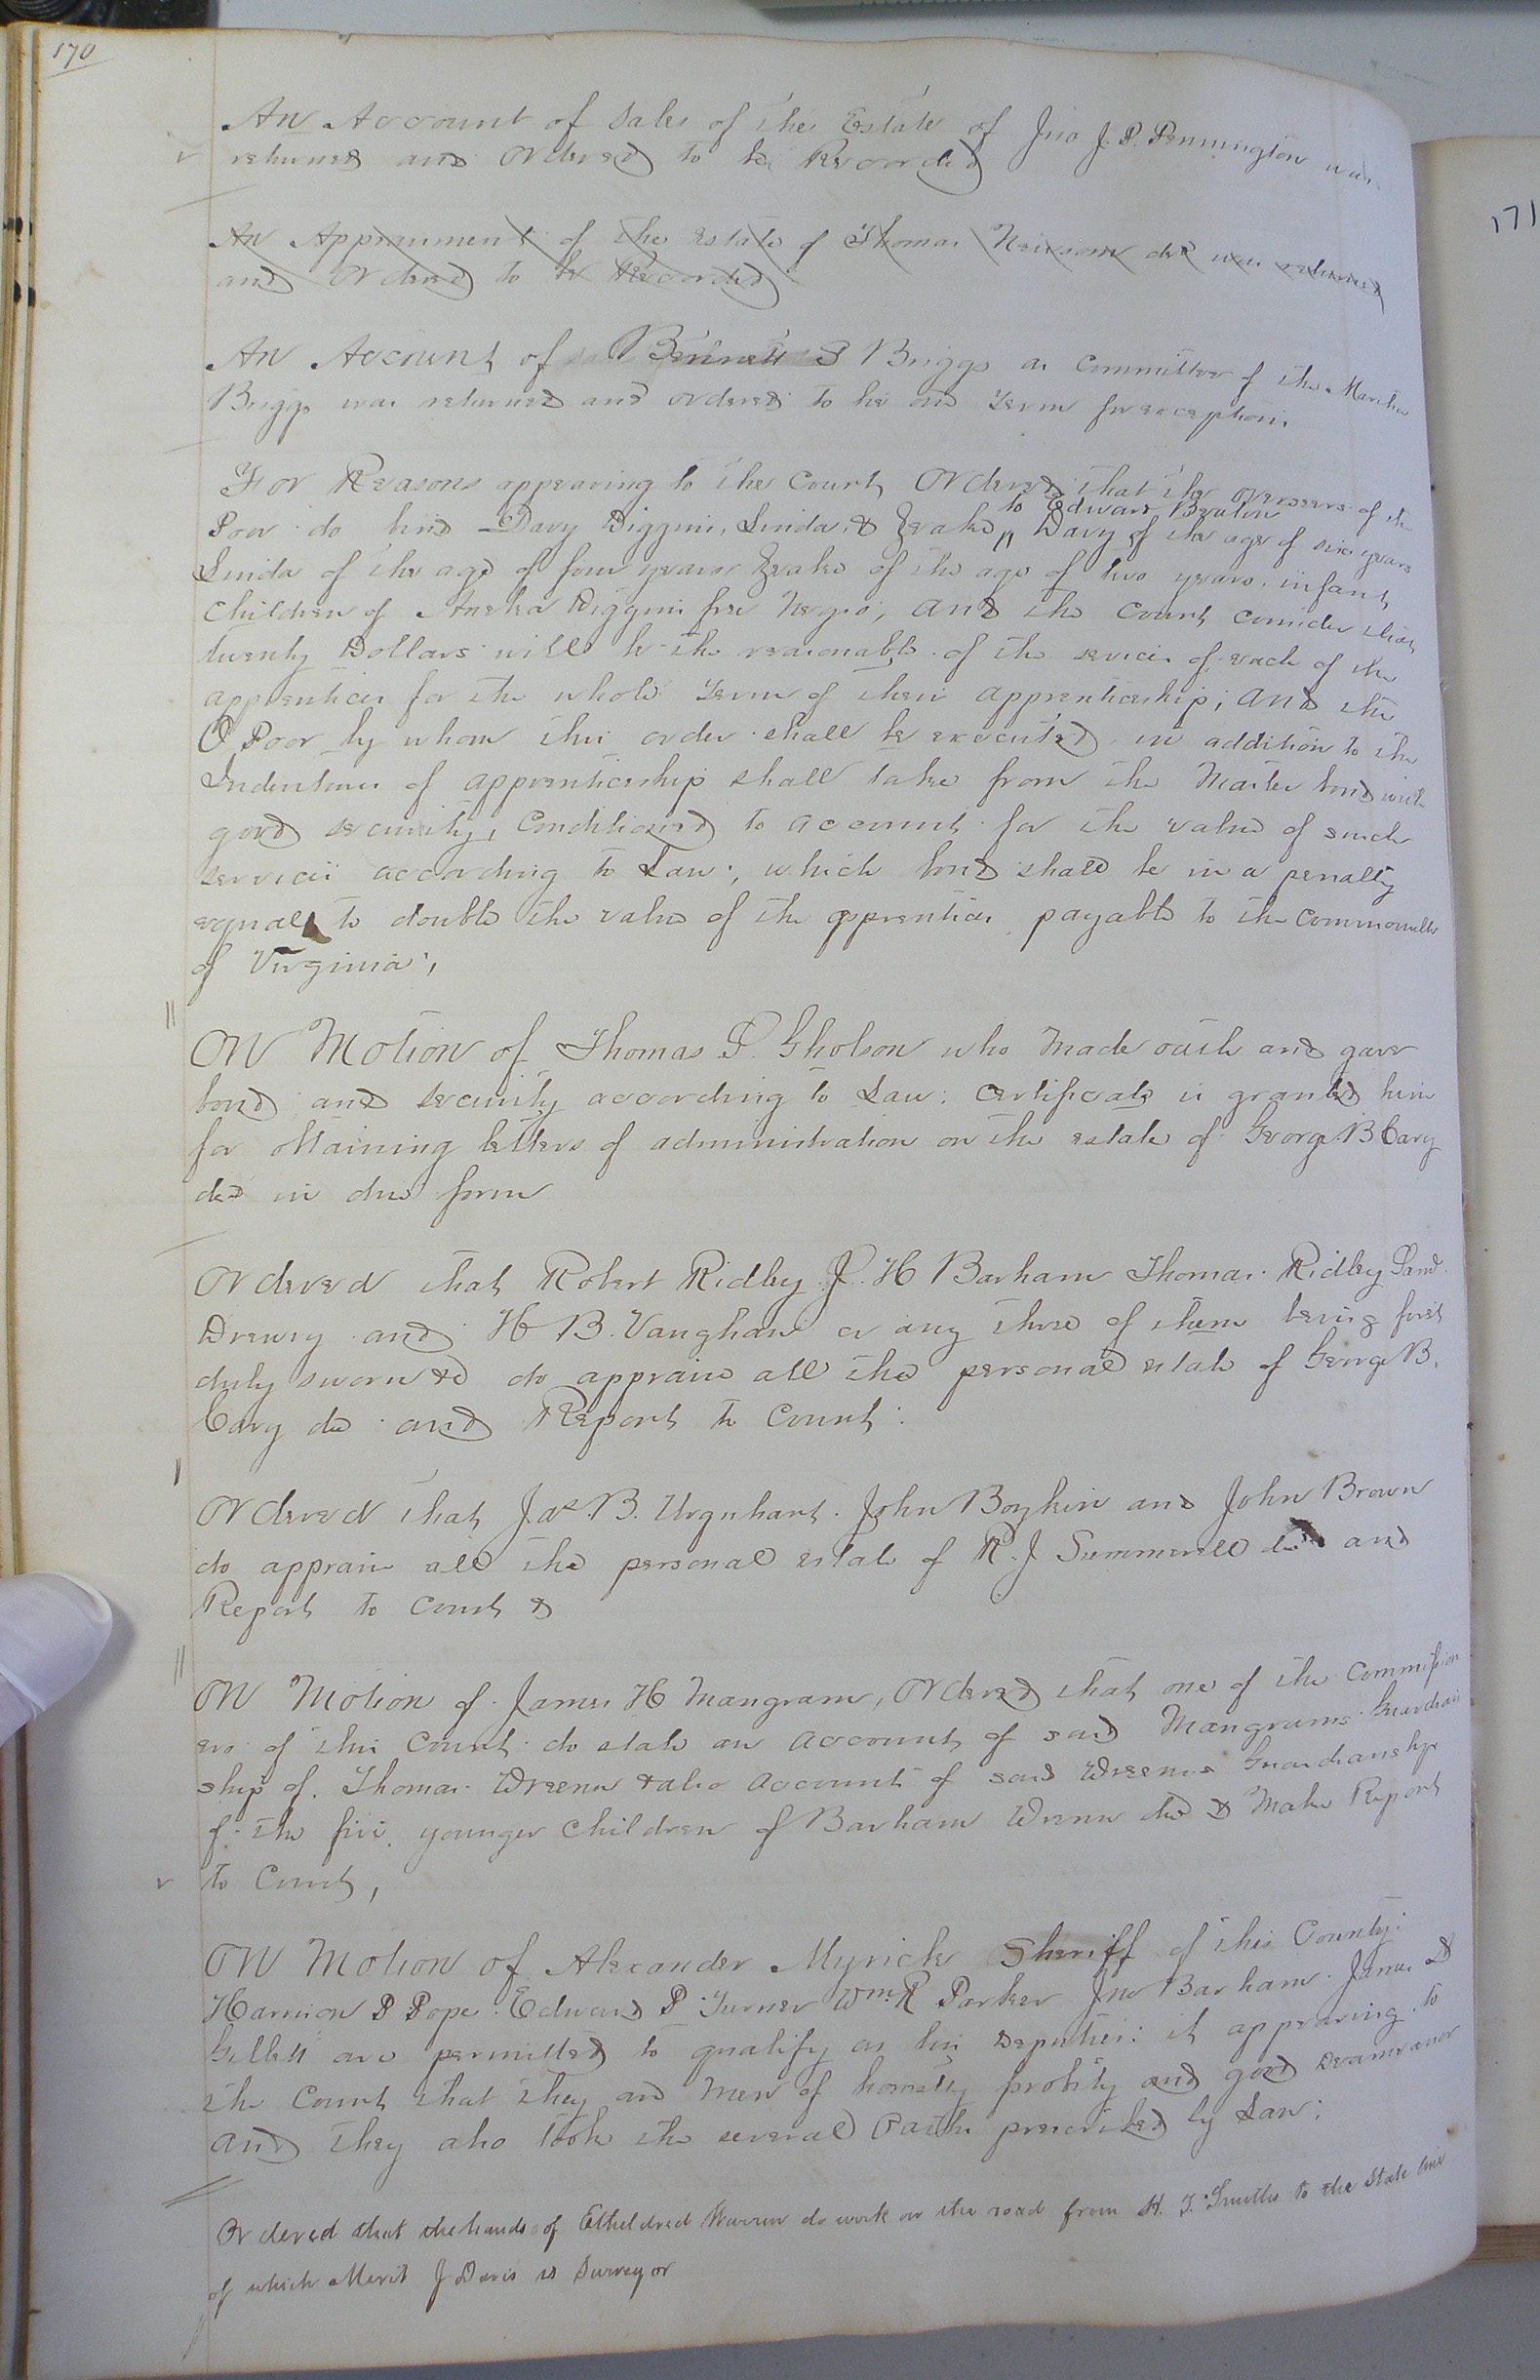 170
An Account of Sales of the Estate of Jno J. P. Pennington was
returned and Ordered to be Recorded
An Appraisment of the Estate of Thomas Newsom decd was returned
and Ordered to be Recorded
An Account of Bennett S Briggs as Committee of the Martha
Briggs was returned and ordered to lie one Term for exceptions
171
For Reasons appearing to the Court, Ordered that the overseers of the
to Edward Beaton
Poor do bind Davy Diggins, Linda, & Drake, Davy of the age of six years
Linda of the age of four years Drake of the age of two years. infant
Children of Diggins free Negro; and the Court consider that
twenty Dollars will be the reasonable of the services of each of the
apprentices for the whole Term of their apprenticeship; and the
O Poor by whom this order shall be executed in addition to the
Indentures of apprenticeship shall take from the Master bond with
good security, Conditioned to account for the value of such
services according to Law; which bond shall be in a penalty
equal to double the value of the apprentices payable to the Commonwlth
of Virginia;
On Motion of Thomas S. Gholson who made oath and gave
bond and security according to Law; Certificate is granted him
for obtaining letters of administration on the estate of George B Cary
decd in due form
Ordered that Robert Ridley J. H Barham Thomas Ridley Saml.
Drewry and H B. Vaughan or any three of them being first
duly sworn &c do appraise all the personal estate of George B.
Cary dec and Report to Court.
Ordered that Jas. B. Urquhart. John Boykin and John Brown
do appraise all the personal estate of R. J Summerell decd and
Report to Court &
On Motion of James H Mangram, Ordered that one of the Commission
ers of this Court do state an Account of said Mangrams Guardian
ship of Thomas Wrenn & also Account of said Wrenns Guardianship
f the five younger Children of Barham Wrenn decd & Make Report
to Court,
On Motion of Alexander Myrick Sheriff of this County;
Harrison P Pope. Edward P Turner Wm. R Parker Jno Barham. James D
Gillett are permitted to qualify as his Deputies: it appearing to
the Court that they are men of honesty probity and good Demeanor
and they also took the several Oaths prescribed by Law;
Ordered that the hands of Etheldred Warren do work on the road from H. T. Smiths to the State line
of which Merit J Davis is Surveyor